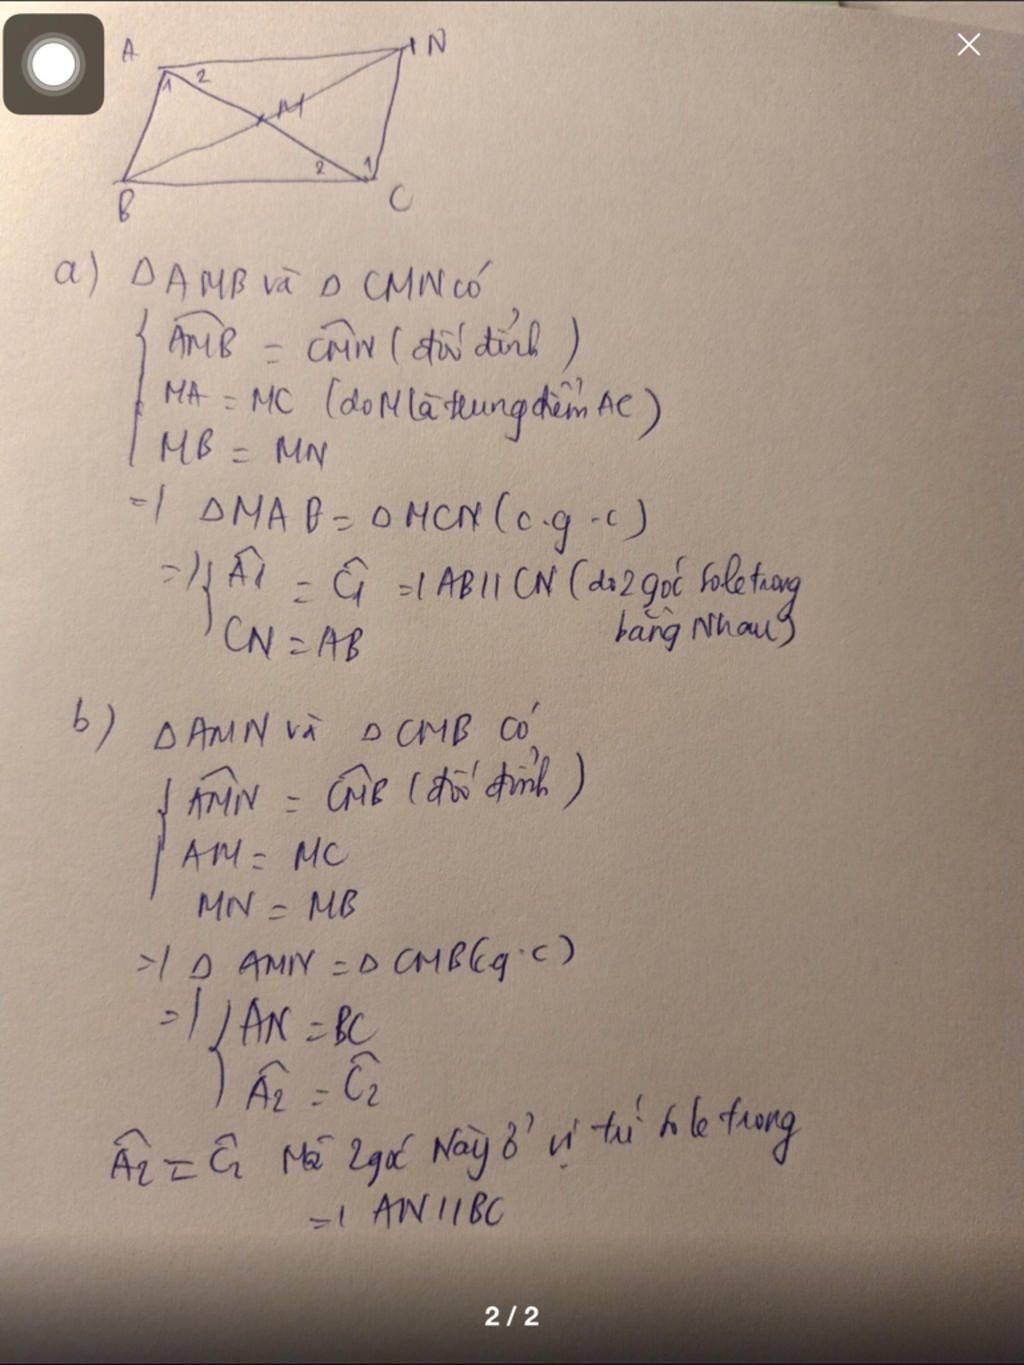 A
N
1 2
M
2 1
B
C
a) Δ AMB và Δ CMN có
AMB = CMN (đối đỉnh)
MA = MC (do M là trung điểm AC)
MB = MN
=> Δ MAB = Δ MCN (c.g.c)
=> Â1 = Ĉ1 => AB // CN (do 2 góc so le trong
bằng nhau)
CN = AB
b) Δ AMN và Δ CMB có
AMN = CMB (đối đỉnh)
AM = MC
MN = MB
=> Δ AMN = Δ CMB (g.c)
=> AN = BC
Â2 = Ĉ2
Â2 = Ĉ2 Mà 2 góc này ở vị trí so le trong
=> AN // BC
2 / 2